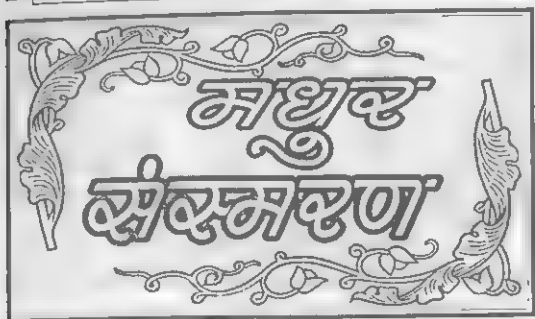 मधुर
संस्मरण